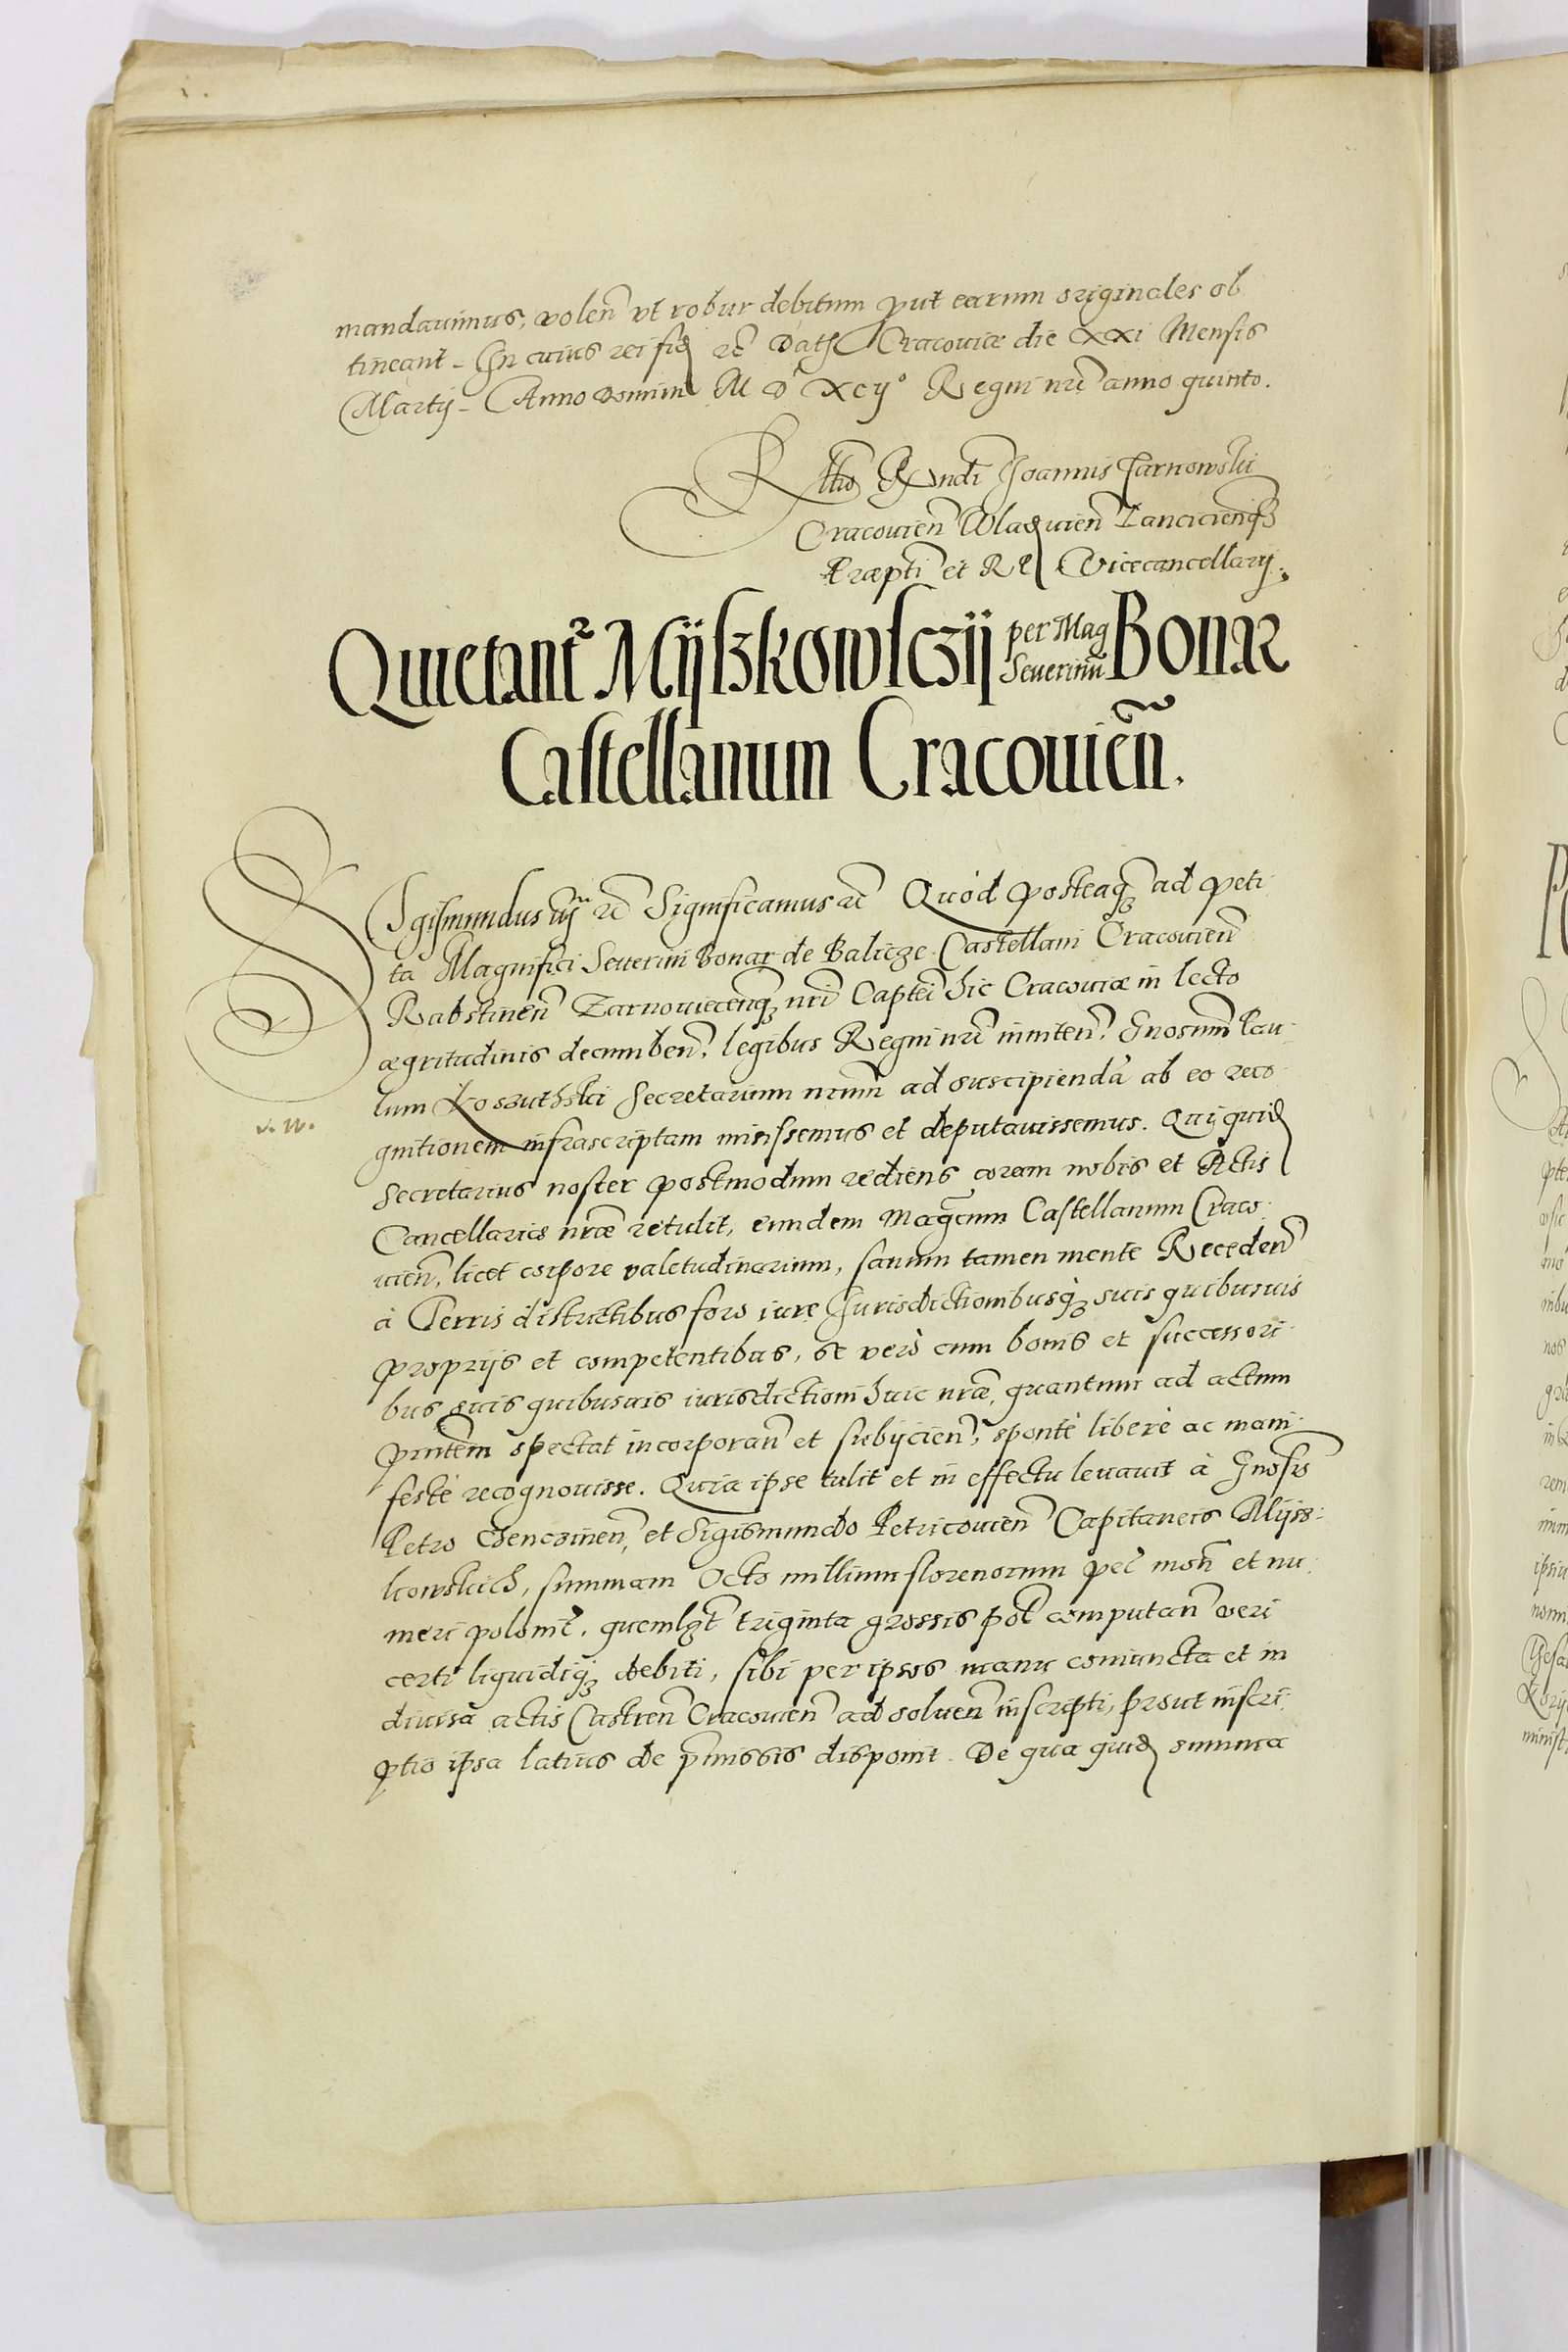 mandauimus, volen̄ vt robur debitum put earum originales ob
tineant. In cuius rei fid ꝛc̄ Dat Cracouiæ die XXI Mensis
Martij. Anno Domini M D XCij° Regni nrī anno quinto.
Rltio Rndi Joannis Tarnowski
Cracouien̄ Wladuien̄ Lancicienq̄ꝫ
Præpti et R P Vicecancellarij.
Quietantr Mijszkowsczij per Mag Seuerinū Bonar
Castellanum Cracouien̄.
Sigismundus iij ꝛc̄ Significamus ꝛc̄ Quòd posteaq̄ꝫ ad peti
ta Magnifici Seuerini Bonar de Balicze Castellani Cracouien̄
Rabstinen̄ Zarnowiecenq̄ꝫ nri Captei hic Cracouiæ in lecto
ægritudinis decumben̄, legibus Regni nrī inniten̄. Gnosum Pau
lum Koszuthski Secretarium nrum ad suscipiendā ab eo reco
gnitionem infrascriptam misissemus et deputauissemus. Qui quid
v. w.
Secretarius noster postmodum rediens coram nobis et Actis
Cancellariæ nræ retulit, eundem Magcum Castellanum Craco
uien̄, licet corpore valetudinarium, sanum tamen mente Receden̄
à Terris districtibus foro iure Jurisdictionibusq̄ꝫ suis quibusuis
proprijs et competentibus, se verò cum bonis et successori
bus suis quibusuis iurisdictioni huic nræ, quantum ad actum
pntem̄ spectat incorporan̄ et subijcien̄, spontè liberè ac mani
festè recognouisse. Quia ipse tulit et in effectu leuauit à Gnosis
Petro Chencinen̄, et Sigismundo Petricouien̄ Capitaneis Mijss
kowskich, summam Octo millium florenorum pec̄ mon̄ et nu
meri polonic̄, quemlꝫt triginta grossis pol̄ computan̄ veri
certi liquidiq̄ꝫ debiti, sibi per ipsos manu coniuncta et in
diuisa actis Castren̄ Cracouien̄ ad soluen̄ inscripti, prout inscri
ptio ipsa latius de pmissis disponit. De qua quid summa